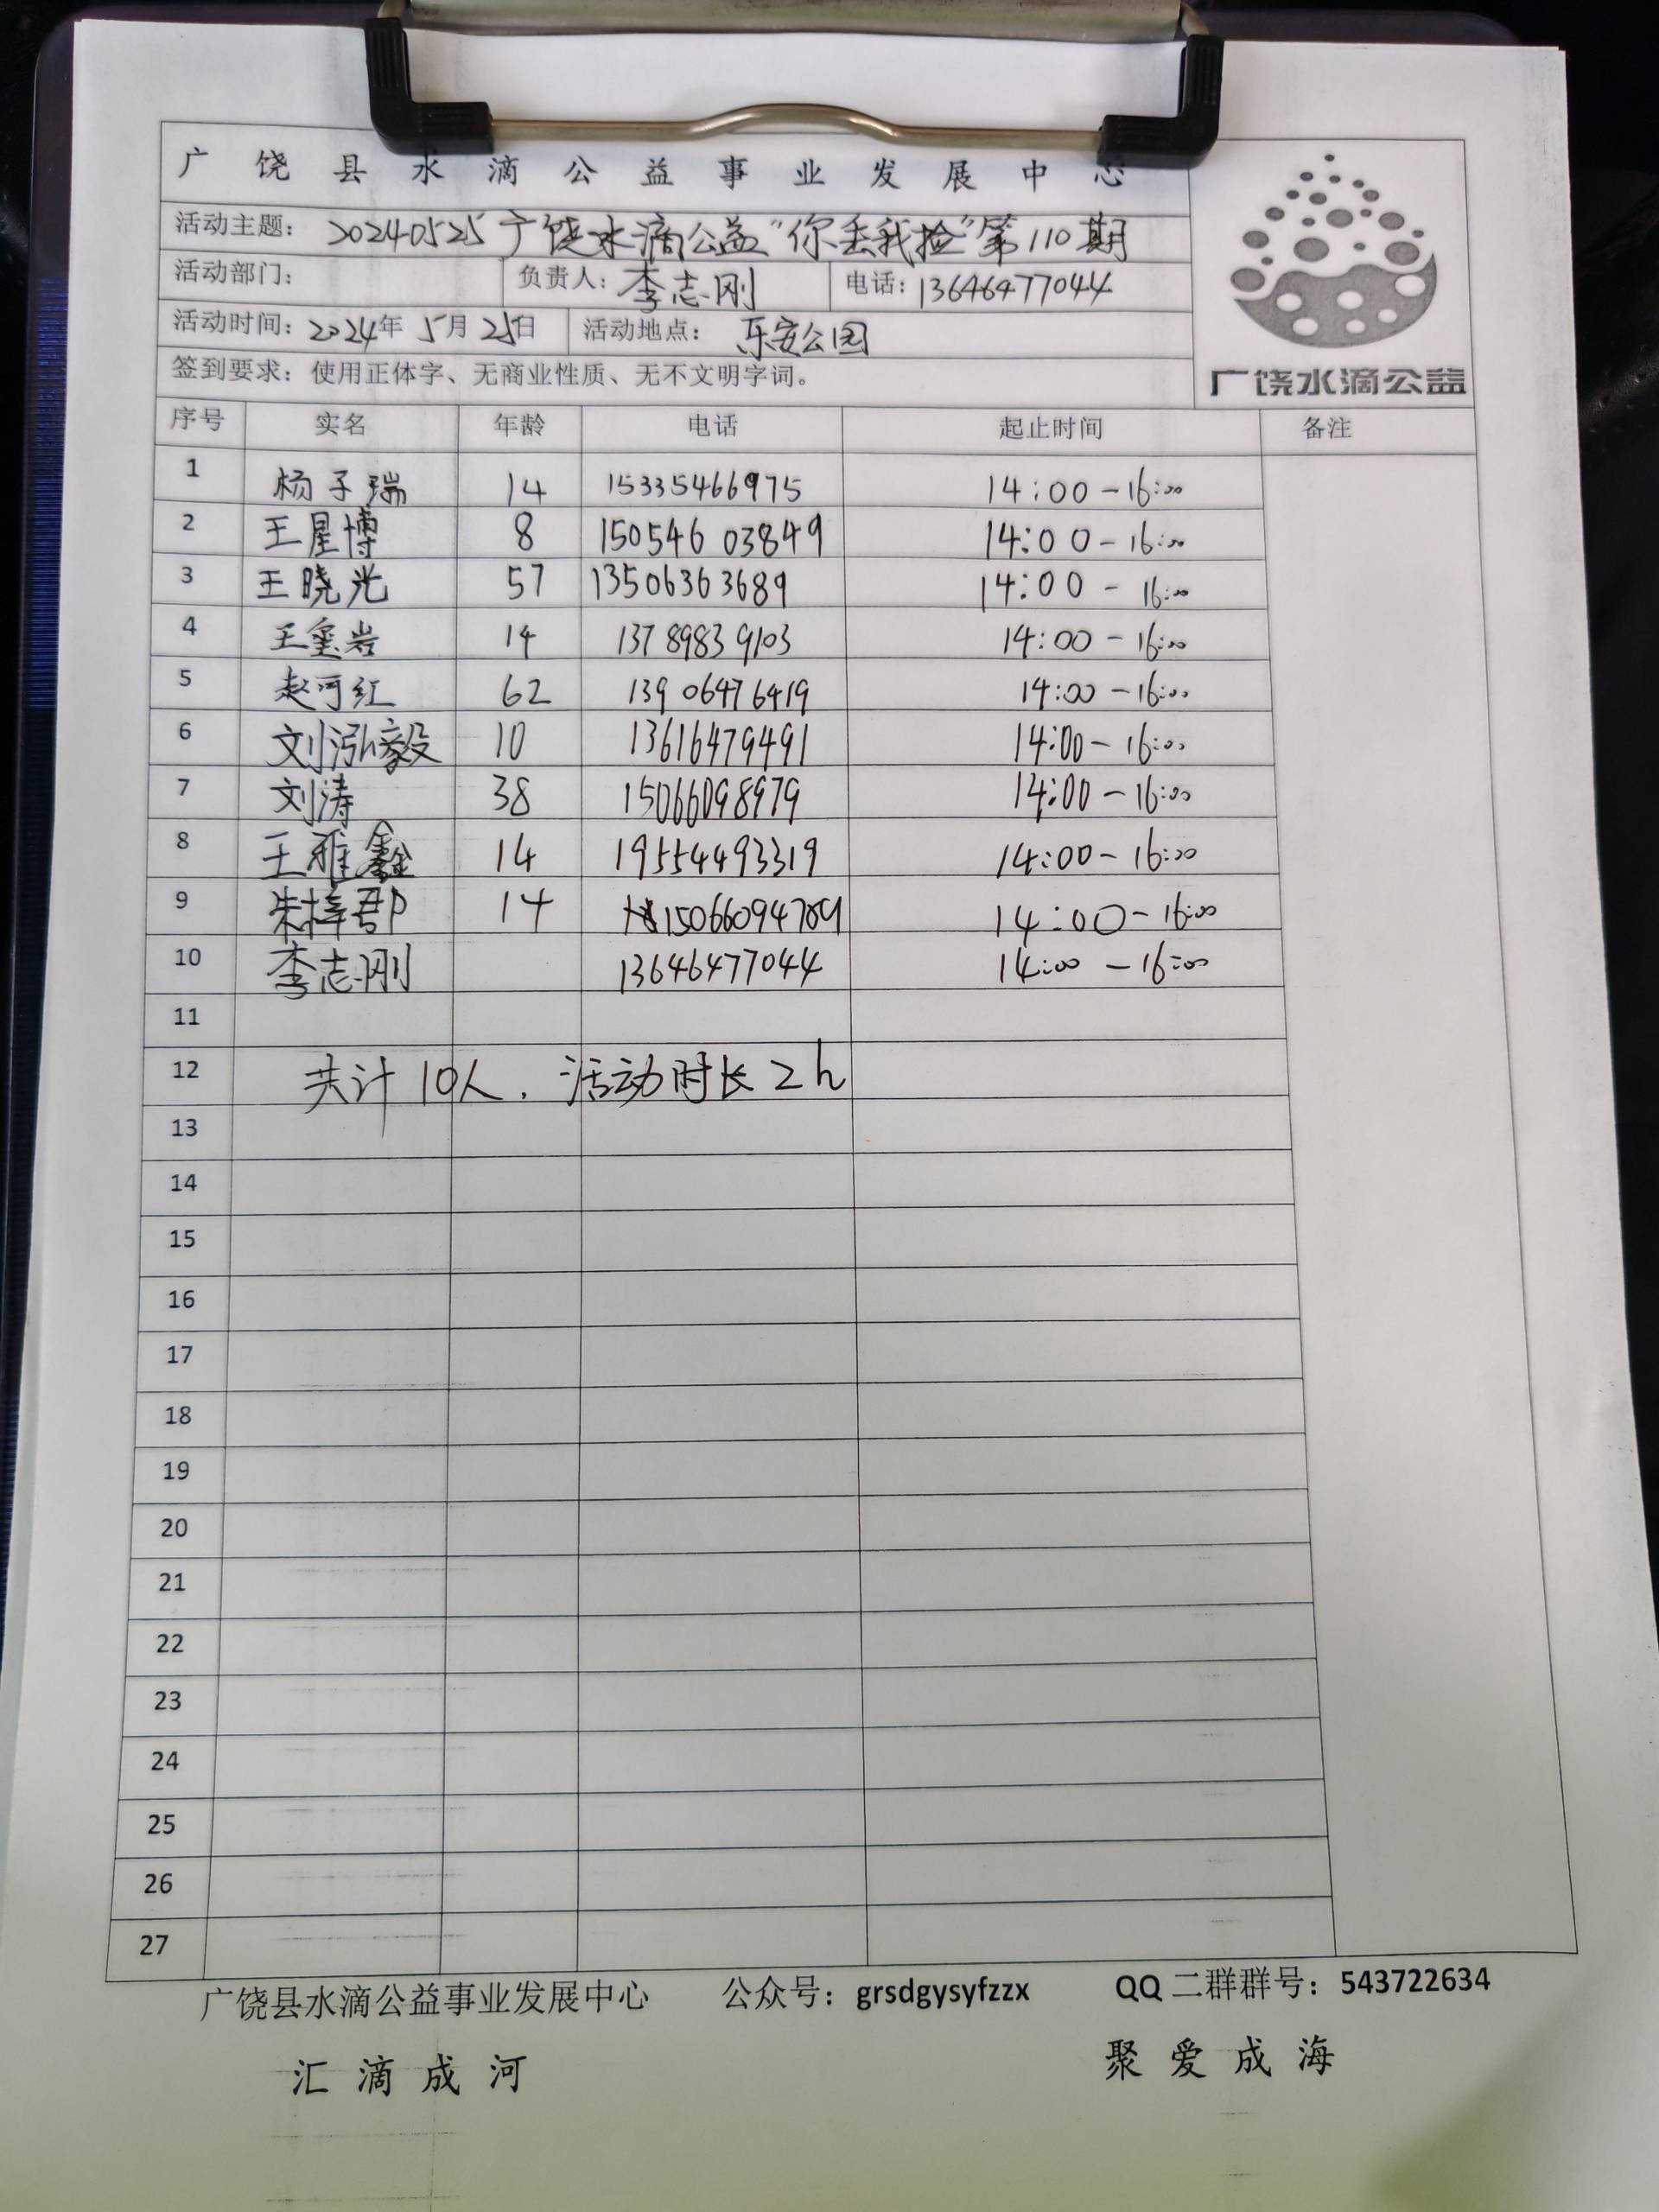 广饶县水滴公益事业发展中心
活动主题：20240525广饶水滴公益"你丢我捡"第110期
活动部门： 负责人：李志刚 电话：13646477044
活动时间：2024年5月25日 活动地点：乐安公园
签到要求：使用正体字、无商业性质、无不文明字词。
广饶水滴公益
序号 实名 年龄 电话 起止时间 备注
1 杨子瑞 14 15335466975 14:00-16:00
2 王星博 8 15054603849 14:00-16:00
3 王晓光 57 13506363689 14:00-16:00
4 王玺岩 14 13789839103 14:00-16:00
5 赵河红 62 13906476419 14:00-16:00
6 刘泓毅 10 13616479491 14:00-16:00
7 刘涛 38 15066098979 14:00-16:00
8 王雅鑫 14 19554493319 14:00-16:00
9 朱梓郡 14 15066094789 14:00-16:00
10 李志刚 13646477044 14:00-16:00
11
12 共计10人，活动时长2h
13
14
15
16
17
18
19
20
21
22
23
24
25
26
27
广饶县水滴公益事业发展中心 公众号：grsdgysyfzzx QQ二群群号：543722634
汇滴成河 聚爱成海